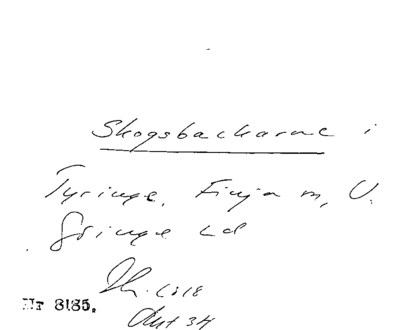 Skogsbackarne i
Tyringe, Finja m, V.
Göinge hd
Nr 8185.